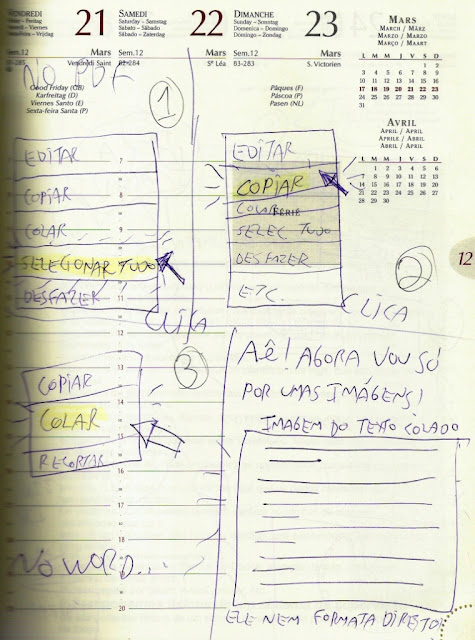 VENDREDI
Friday - Freitag
Viernes - Sexta-feira
21
SAMEDI
Saturday - Samstag
Sábado - Sábado
Sabato - Zaterdag
22
DIMANCHE
Sunday - Sonntag
Domenica - Domingo
Domingo - Zondag
23
Sem.12
Mars
83-283
Vendredi Saint
Good Friday (GB)
Karfreitag (D)
Viernes Santo (E)
Sexta-feira Santa (P)
Sem.12
Mars
82-284
Sᵉ Léa
Sem.12
Mars
83-283
S. Victorien
Pâques (F)
Páscoa (P)
Pasen (NL)
MARS
MARCH / MÄRZ
MARZO / MARZO
MARÇO / MAART
L M M J V S D
1 2
3 4 5 6 7 8 9
10 11 12 13 14 15 16
17 18 19 20 21 22 23
24 25 26 27 28 29 30
31
AVRIL
APRIL / APRIL
APRILE / ABRIL
ABRIL / APRIL
L M M J V S D
1 2 3 4 5 6
7 8 9 10 11 12 13
14 15 16 17 18 19 20
21 22 23 24 25 26 27
28 29 30
12
NO PDF
1
EDITAR
COPIAR
COLAR
SELECIONAR TUDO
DESFAZER
CLICA
2
EDITAR
COPIAR
COLAR
FÉRIÉ
SELEC TUDO
DESFAZER
ETC.
CLICA
3
COPIAR
COLAR
RECORTAR
NO WORD...
7
8
9
10
11
12
13
14
15
16
17
18
19
20
AÊ! AGORA VOU SÓ
POR UMAS IMÁGENS!
IMAGEM DO TEXTO COLADO
ELE NEM FORMATA DIREITO!